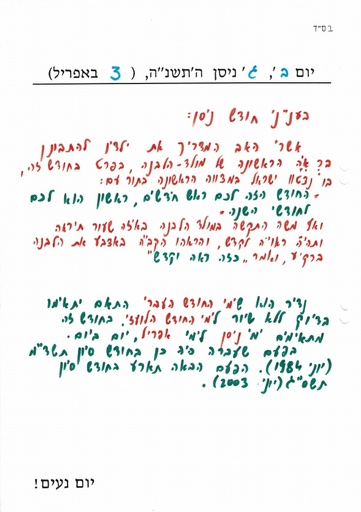 בס״ד
יום ב׳, ג׳ ניסן ה׳תשנ״ה, ( 3 באפריל)
בענין ׳ חודש ניסן:
אשרי האב המדריך את ילדיו להתבונן
הראשונה של מולד-הלבנה, בפרט בחודש זה,
בו נצטוו ישראל במצווה הראשונה בתור עם:
- החודש הזה לכם ראש חדשים, ראשון הוא לכם
לחודשי השנה-
ואף משה התקשה במולד הלבנה באיזה שעור תיראה
ותהיה ראויה לקדש, והראהו הקב״ה באצבע את הלבנה
ברקיע, ואמר ״כזה ראה וקדש״
נדיר הוא שימי החודש העברי התאם יתאימו
בדיוק ללא שיור לימי החודש הלועזי. בחודש זה
מתאימים ימי ניסן לימי אפריל, יום ביום.
בפעם שעברה היה כן בחודש סיון תשד״מ
(יוני 1984). הפעם הבאה תארע בחודש סיון
תשס״ג (יוני 2003).
יום נעים!